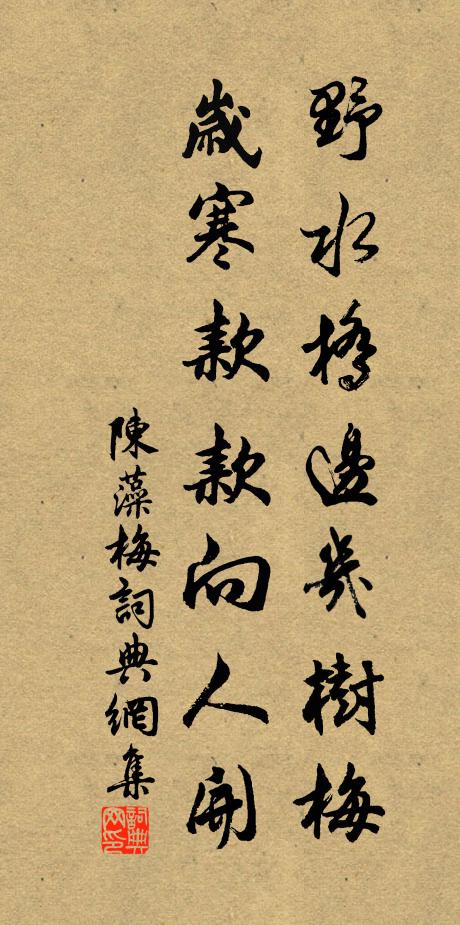 野水橋邊幾樹梅
歲寒款款向人開
陳藻梅詞典網集
詞典網印